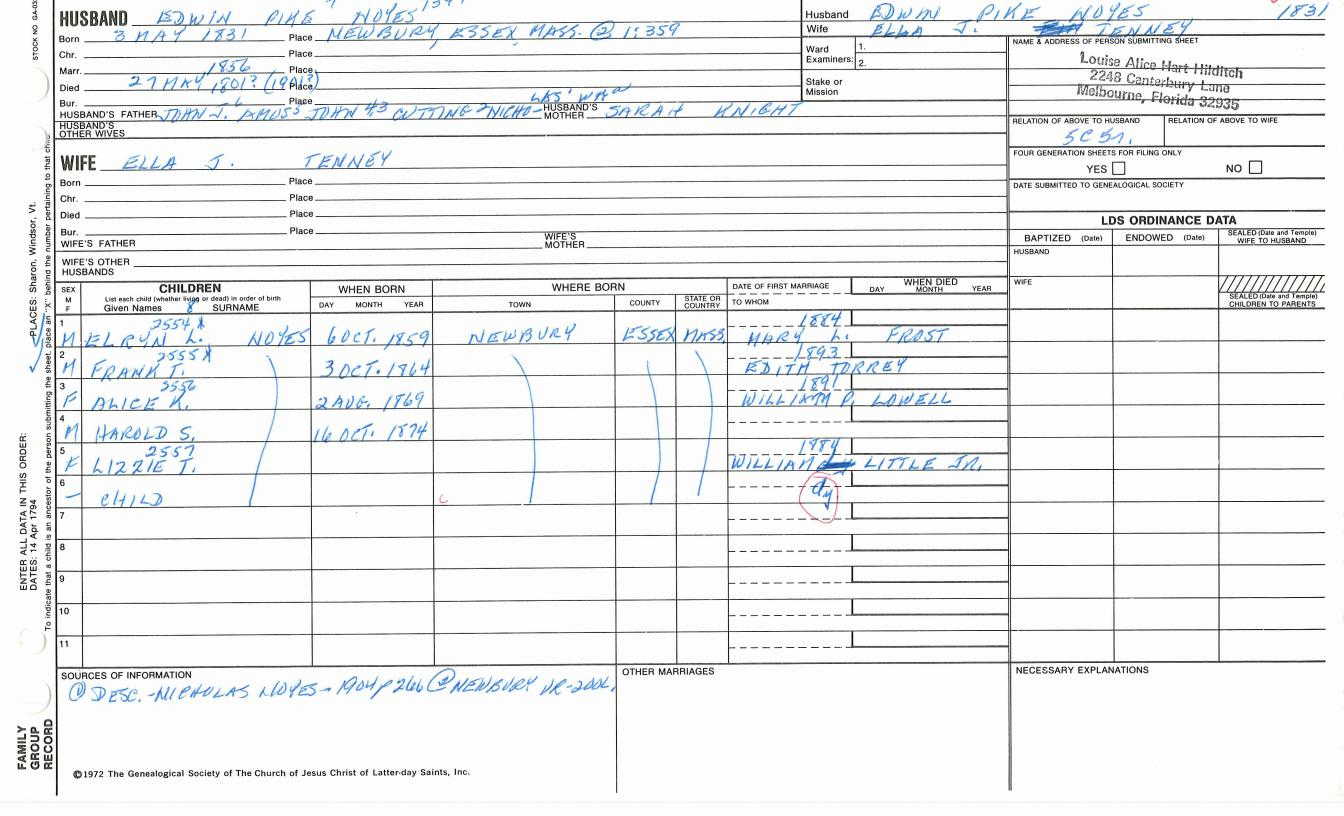 HUSBAND EDWIN PIKE NOYES
Born 3 MAY 1831 Place NEWBURY, ESSEX, MASS. @ 1:359
Chr.
Marr. 1856 Place
Died 27 MAY 1801? (1901?) Place
Bur. Place
HUSBAND'S FATHER JOHN J. AMOS5 JOHN 43 CUTTING 2NICHO- LAS' HUSBAND'S MOTHER SARAH KNIGHT
HUSBAND'S OTHER WIVES
Husband EDWIN PIKE NOYES 1831
Wife ELLA J. TENNEY
Ward Examiners: 1.
2.
Stake or Mission
NAME & ADDRESS OF PERSON SUBMITTING SHEET
Louise Alice Hart Hilditch
2248 Canterbury Lane
Melbourne, Florida 32935
RELATION OF ABOVE TO HUSBAND RELATION OF ABOVE TO WIFE
5C 5r.
FOUR GENERATION SHEETS FOR FILING ONLY
YES NO
DATE SUBMITTED TO GENEALOGICAL SOCIETY
WIFE ELLA J. TENNEY
Born Place
Chr. Place
Died Place
Bur. Place
WIFE'S FATHER WIFE'S MOTHER
WIFE'S OTHER HUSBANDS
LDS ORDINANCE DATA
BAPTIZED (Date) ENDOWED (Date) SEALED (Date and Temple) WIFE TO HUSBAND
HUSBAND
WIFE
SEALED (Date and Temple) CHILDREN TO PARENTS
SEX M F
CHILDREN
List each child (whether living or dead) in order of birth
Given Names 8 SURNAME
WHEN BORN
DAY MONTH YEAR
WHERE BORN
TOWN COUNTY STATE OR COUNTRY
DATE OF FIRST MARRIAGE
TO WHOM
WHEN DIED
DAY MONTH YEAR
1 2554 X 1884
M ELRYN L. NOYES 6 OCT. 1859 NEWBURY ESSEX MASS. MARY L. FROST
2 2555 X 1893
M FRANK T. 3 OCT. 1864 EDITH TORREY
3 2556 1891
F ALICE K. 2 AUG. 1869 WILLIAM P. LOWELL
4
M HAROLD S. 16 OCT. 1874
5 2557 1884
F LIZZIE T. WILLIAM LITTLE JR.
6 dy
- CHILD
7
8
9
10
11
SOURCES OF INFORMATION
@ DESC.-NICHOLAS NOYES-1904 p 266 @ NEWBURY VR-2 VOL.
OTHER MARRIAGES
NECESSARY EXPLANATIONS
©1972 The Genealogical Society of The Church of Jesus Christ of Latter-day Saints, Inc.
FAMILY GROUP RECORD
ENTER ALL DATA IN THIS ORDER:
DATES: 14 Apr 1794
PLACES: Sharon, Windsor, Vt.
To indicate that a child is an ancestor of the person submitting the sheet, place an "X" behind the number pertaining to that child.
STOCK NO